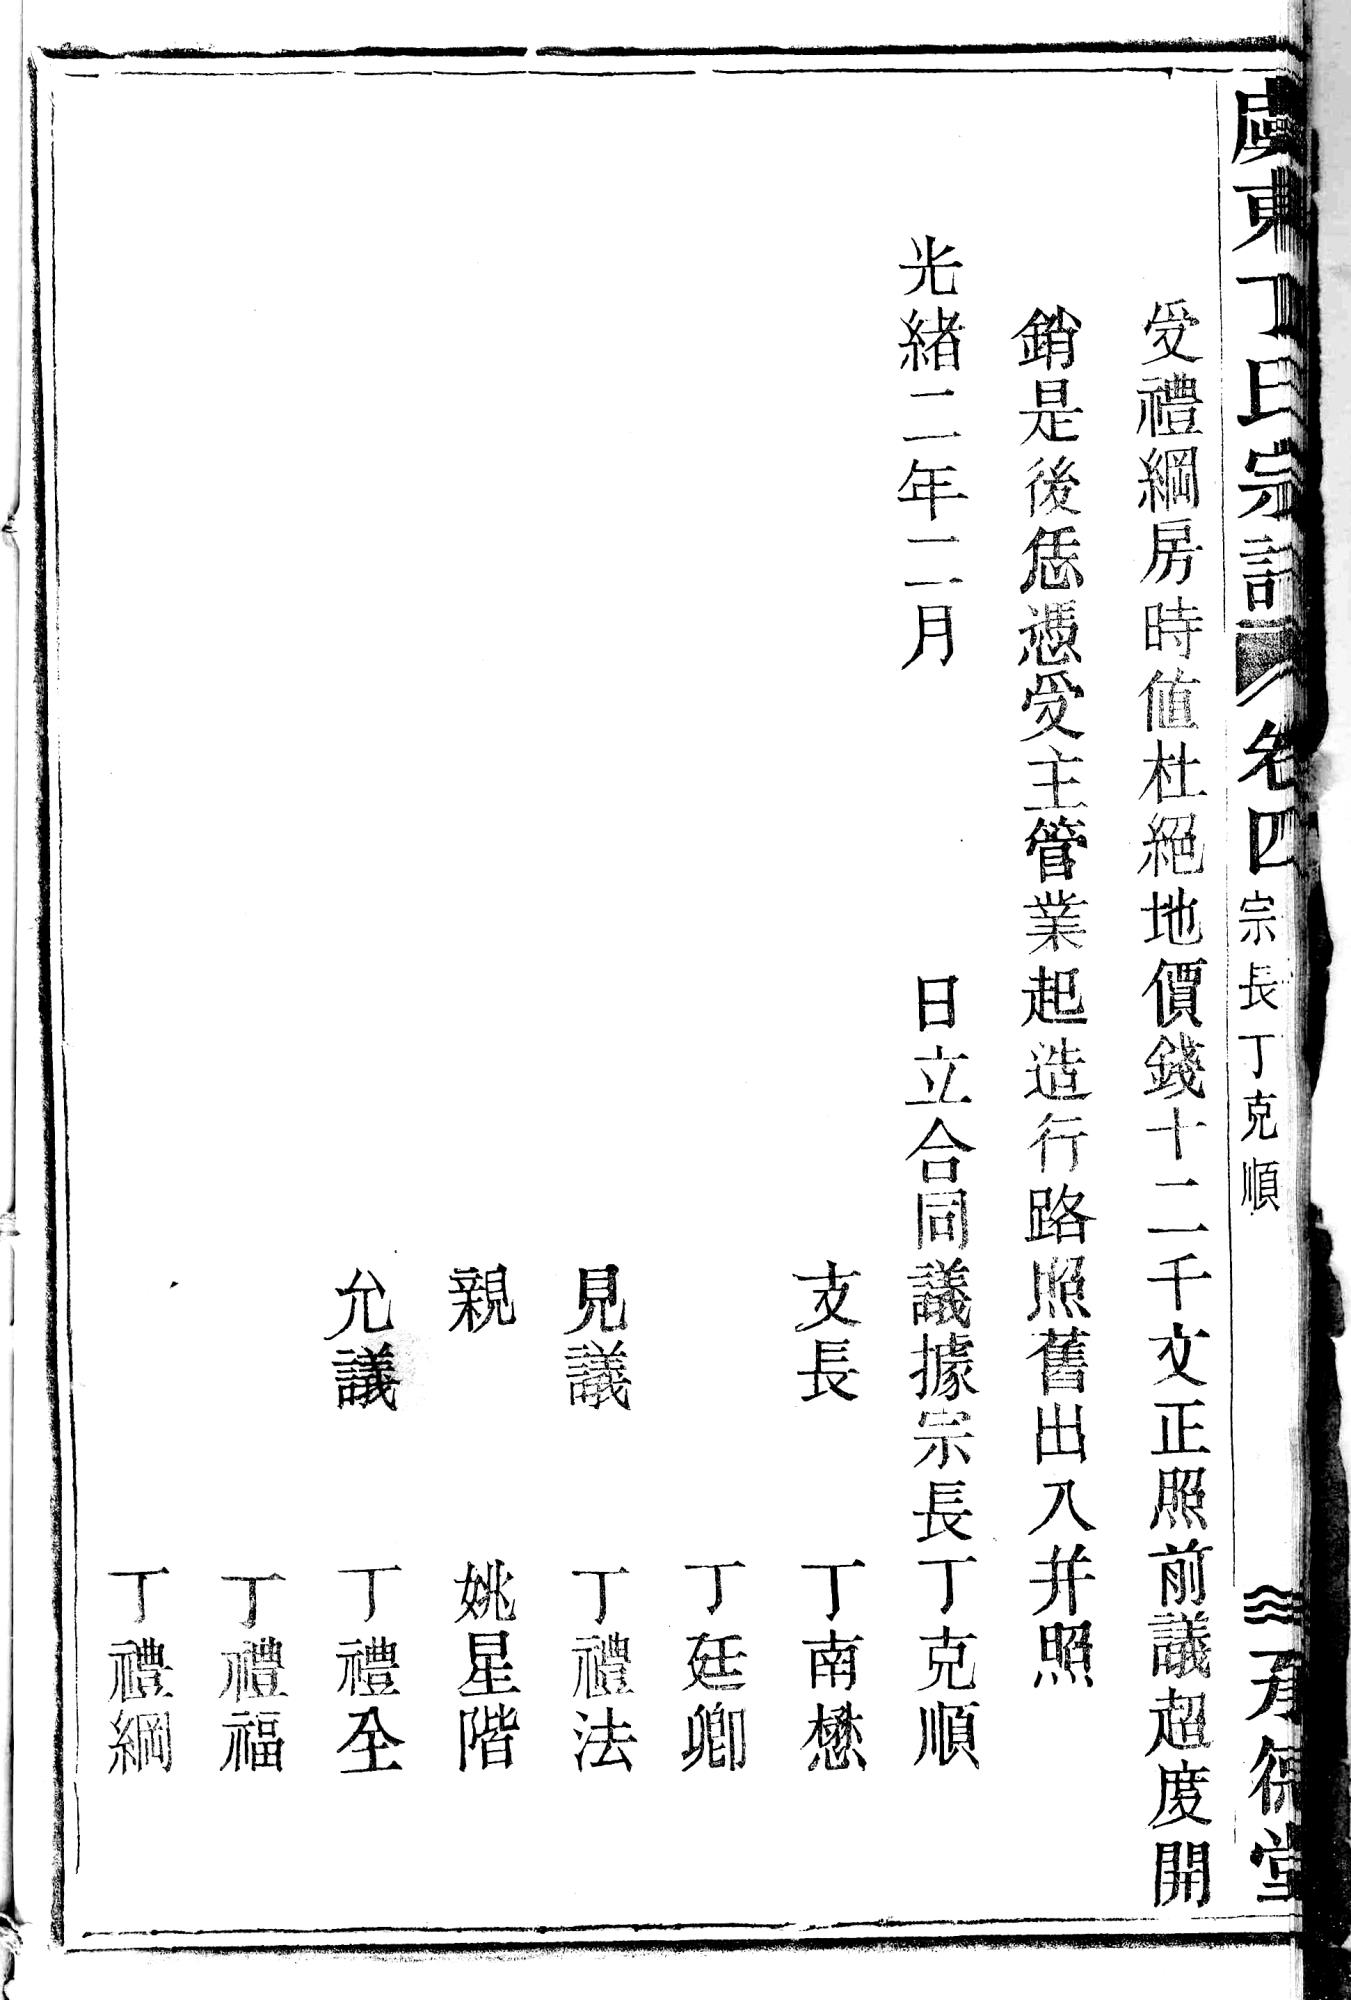 虞東丁氏宗譜 卷四 宗長丁克順 三 承德堂
受禮綱房時值杜絕地價錢十二千文正照前議超度開
銷是後恁憑受主管業起造行路照舊出入并照
光緒二年二月 日立合同議據宗長丁克順
支長 丁南懋
丁廷卿
見議 丁禮法
親 姚星階
允議 丁禮全
丁禮福
丁禮綱